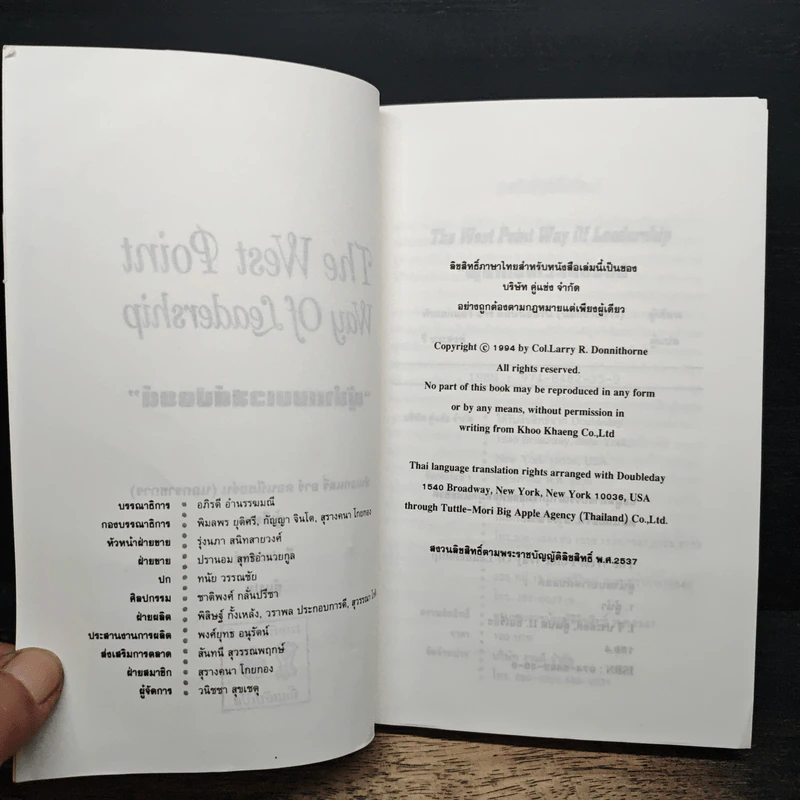 บรรณาธิการ อภิรดี อำนรรฆมณี
กองบรรณาธิการ พิมลพร ยุติศรี, กัญญา จินโต, สุรางคนา โกยทอง
หัวหน้าฝ่ายขาย รุ่งนภา สนิทสายวงศ์
ฝ่ายขาย ปรานอม สุทธิอำนวยกูล
ปก ทนัย วรรณชัย
ศิลปกรรม ชาติพงศ์ กลั่นปรีชา
ฝ่ายผลิต พิสิษฐ์ กั้งเหลง, วราพล ประกอบการดี, สุวรรณา
ประสานงานการผลิต พงศ์ยุทธ อนุรัตน์
ส่งเสริมการตลาด สันทนี สุวรรณพฤกษ์
ฝ่ายสมาชิก สุรางคนา โกยทอง
ผู้จัดการ วนิชชา สุขเชตุ
ลิขสิทธิ์ภาษาไทยสำหรับหนังสือเล่มนี้เป็นของ
บริษัท คู่แข่ง จำกัด
อย่างถูกต้องตามกฎหมายแต่เพียงผู้เดียว
Copyright © 1994 by Col.Larry R. Donnithorne
All rights reserved.
No part of this book may be reproduced in any form
or by any means, without permission in
writing from Khoo Khaeng Co.,Ltd
Thai language translation rights arranged with Doubleday
1540 Broadway, New York, New York 10036, USA
through Tuttle-Mori Big Apple Agency (Thailand) Co.,Ltd.
สงวนลิขสิทธิ์ตามพระราชบัญญัติลิขสิทธิ์ พ.ศ.2537